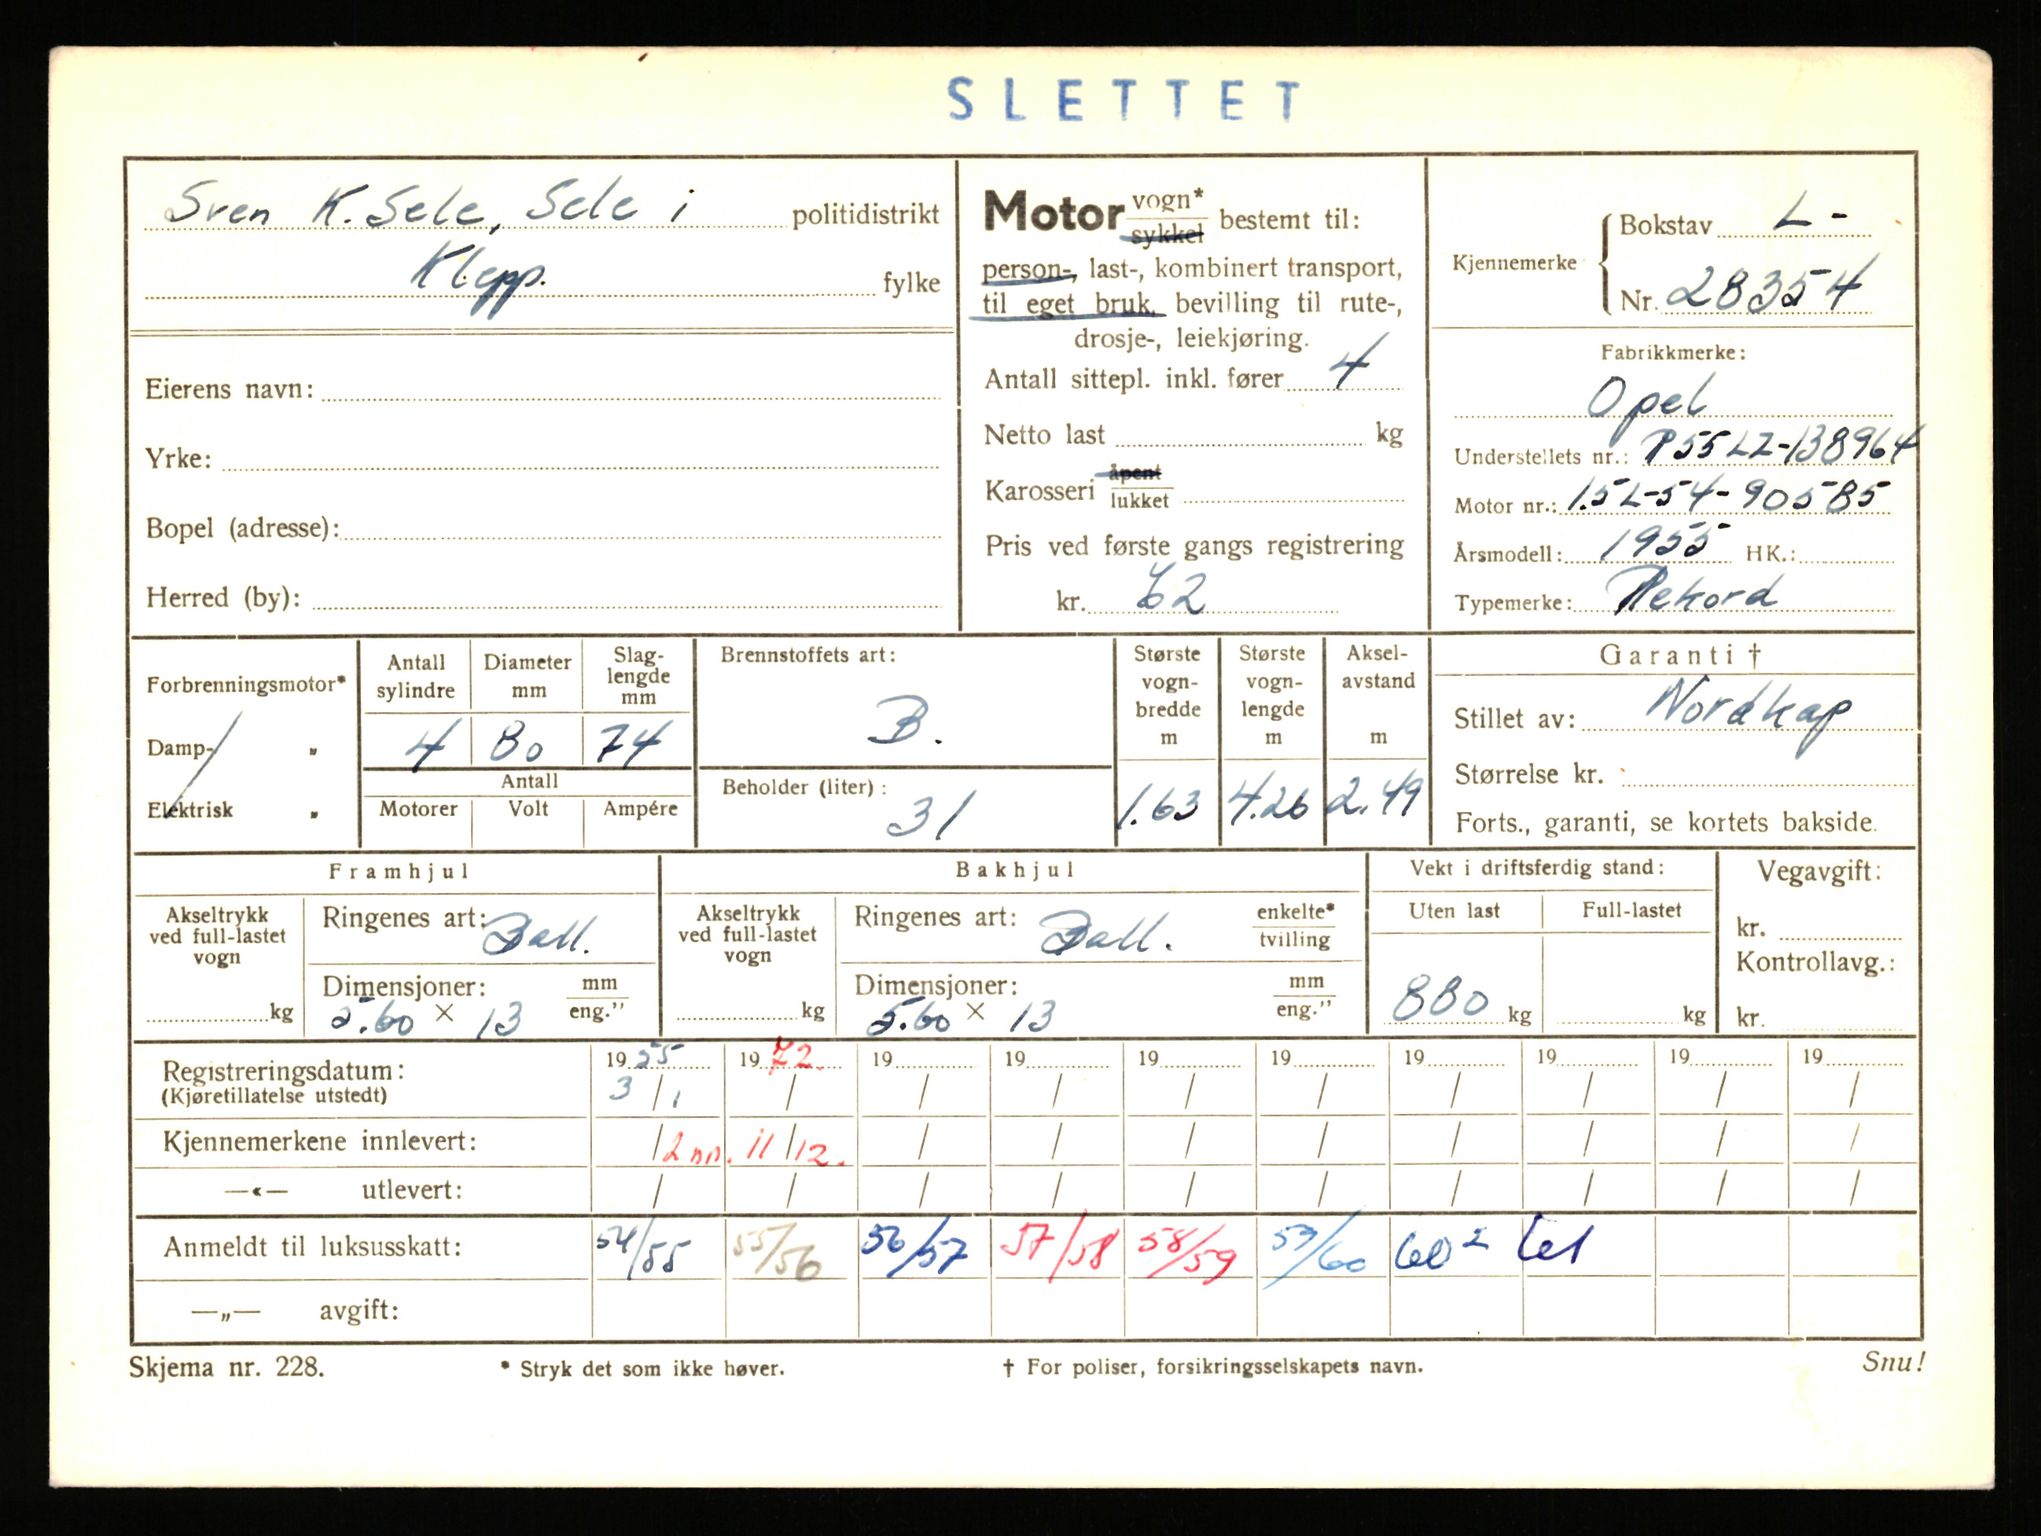 SLETTET
Sven K. Sele, Sele i politidistrikt
Klepp. fylke
Eierens navn:
Yrke:
Bopel (adresse):
Herred (by):
Motor vogn* / sykkel bestemt til:
person-, last-, kombinert transport,
til eget bruk, bevilling til rute-,
drosje-, leiekjøring.
Antall sittepl. inkl. fører 4
Netto last kg
Karosseri åpent / lukket
Pris ved første gangs registrering
kr. 62
Kjennemerke
Bokstav L-
Nr. 28354
Fabrikkmerke:
Opel
Understellets nr.: P55LZ-138964
Motor nr.: 1.5L-54-90585
Årsmodell: 1955 HK.:
Typemerke: Rekord
Forbrenningsmotor*
Damp- „
Elektrisk „
Antall sylindre
Diameter mm
Slag-lengde mm
4 80 74
Antall
Motorer Volt Ampére
Brennstoffets art:
B.
Beholder (liter):
31
Største vogn-bredde m
Største vogn-lengde m
Aksel-avstand m
1.63 4.26 2.49
Garanti †
Stillet av: Nordkap
Størrelse kr.
Forts., garanti, se kortets bakside.
Framhjul
Akseltrykk ved full-lastet vogn
kg
Ringenes art: Ball.
Dimensjoner: mm / eng."
5.60 × 13
Bakhjul
Akseltrykk ved full-lastet vogn
kg
Ringenes art: Ball. enkelte* / tvilling
Dimensjoner: mm / eng."
5.60 × 13
Vekt i driftsferdig stand:
Uten last Full-lastet
880 kg kg
Vegavgift:
kr.
Kontrollavg.:
kr.
Registreringsdatum: 1955 1972. 19 19 19 19 19 19 19 19
(Kjøretillatelse utstedt) 3/1 / / / / / / / / /
Kjennemerkene innlevert: / 2 nr. 11/12. / / / / / / / /
—«— utlevert: / / / / / / / / / /
Anmeldt til luksusskatt: 54/55 55/56 56/57 57/58 58/59 59/60 60² 61
—„— avgift:
Skjema nr. 228. * Stryk det som ikke høver. † For poliser, forsikringsselskapets navn. Snu!